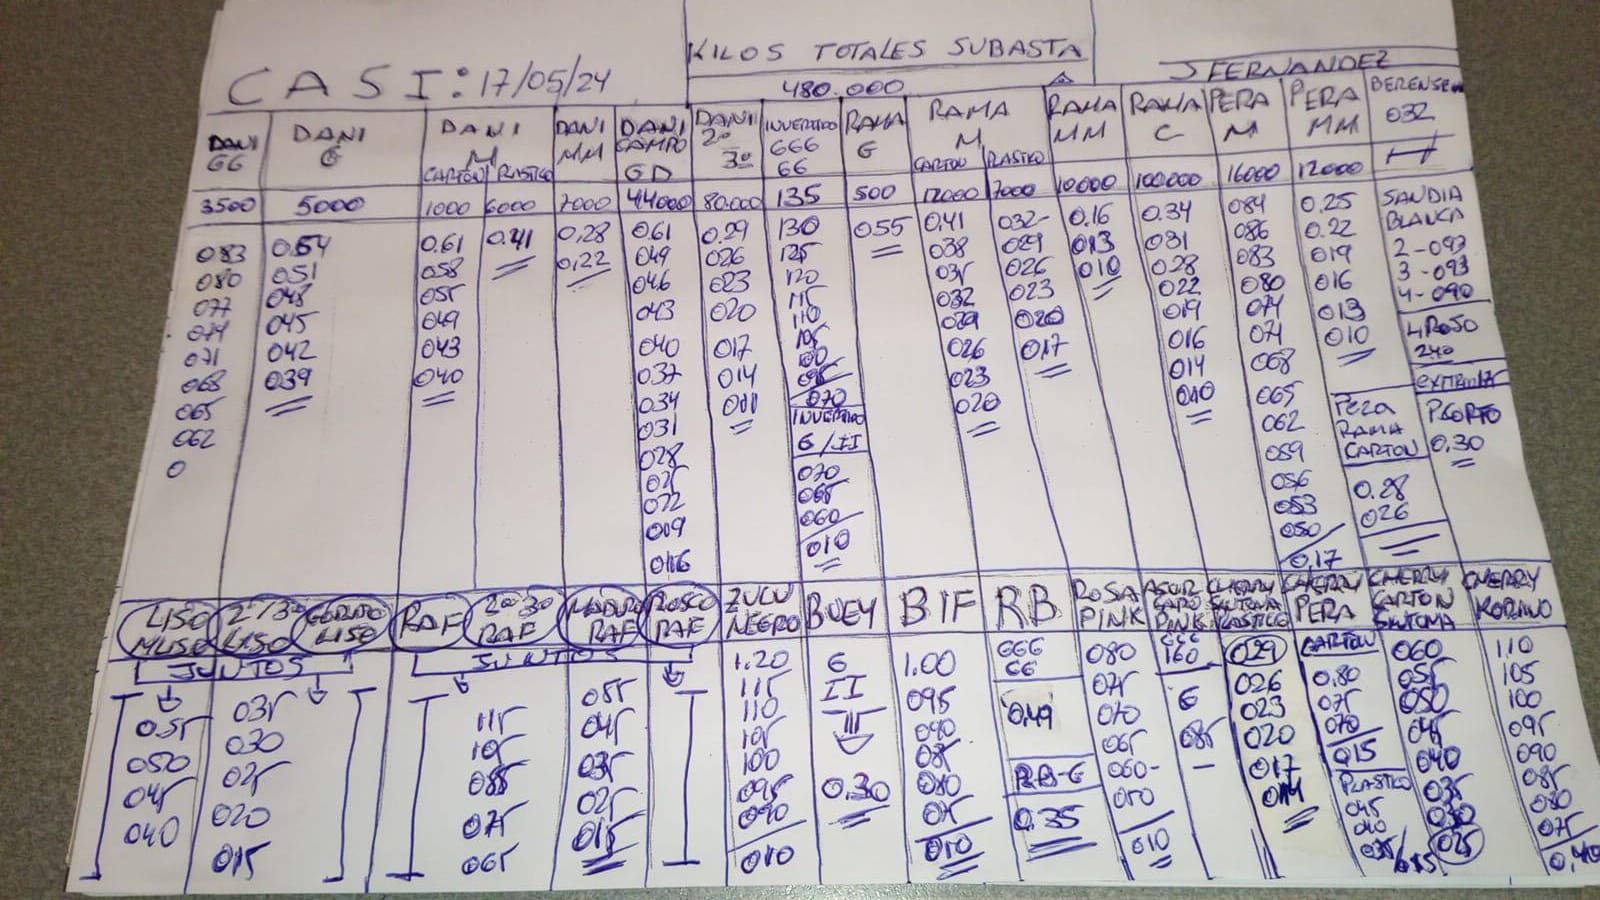 KILOS TOTALES SUBASTA
CASI: 17/05/24
480.000
J FERNANDEZ
DANI GG
3500
083
080
077
074
071
068
065
062
0
DANI G
5000
0.54
051
048
045
042
039
DANI M
CARTON PLASTICO
1000 6000
0.61 0.41
058
055
049
043
040
DANI MM
7000
0,28
0,22
DANI CAMPO GD
44000
061
049
046
043
040
037
034
031
028
025
022
019
016
DANI 2ª 3ª
80.000
0.29
026
023
020
017
014
011
INVERTIDO
666
66
135
130
125
120
115
110
105
100
095
070
INVERTIDO
6/II
070
065
060
010
RAMA G
500
055
RAMA M
CARTON PLASTICO
12000 7000
0.41 032
038 029
035 026
032 023
029 020
026 017
023
020
RAMA MM
10000
0.16
013
010
RAMA C
100.000
0.34
031
028
022
019
016
014
010
PERA M
16000
084
086
083
080
074
071
068
065
062
059
056
053
050
0,17
PERA MM
12000
0.25
0.22
019
016
013
010
PERA
RAMA
CARTON
0.28
026
BERENGENA
032
SANDIA
BLANCA
2-093
3-093
4-090
240
0.30
LISO MUSO
2ª/3ª LISO
GORDO LISO
JUNTOS
055
050
045
040
035
030
025
020
015
RAF
2ª 3ª RAF
MADURO RAF
ROSCO RAF
JUNTOS
115
105
085
075
065
055
045
035
025
015
ZULU NEGRO
1.20
115
110
105
100
095
090
010
BUEY
G
II
III
0.30
BIF
1.00
095
090
085
080
075
010
RB
666
66
0.49
RB-G
0.35
ROSA PINK
080
075
070
065
060-
050
010
PINK
666
160
6
085
CHERRY SANTOMA PLASTICO
029
026
023
020
017
014
CHERRY PERA
CARTON
0.80
075
070
015
PLASTICO
045
040
035/015
CHERRY CARTON SANTOMA
060
055
050
045
040
035
030
025
CHERRY KOMINO
1.10
105
100
095
090
085
080
075